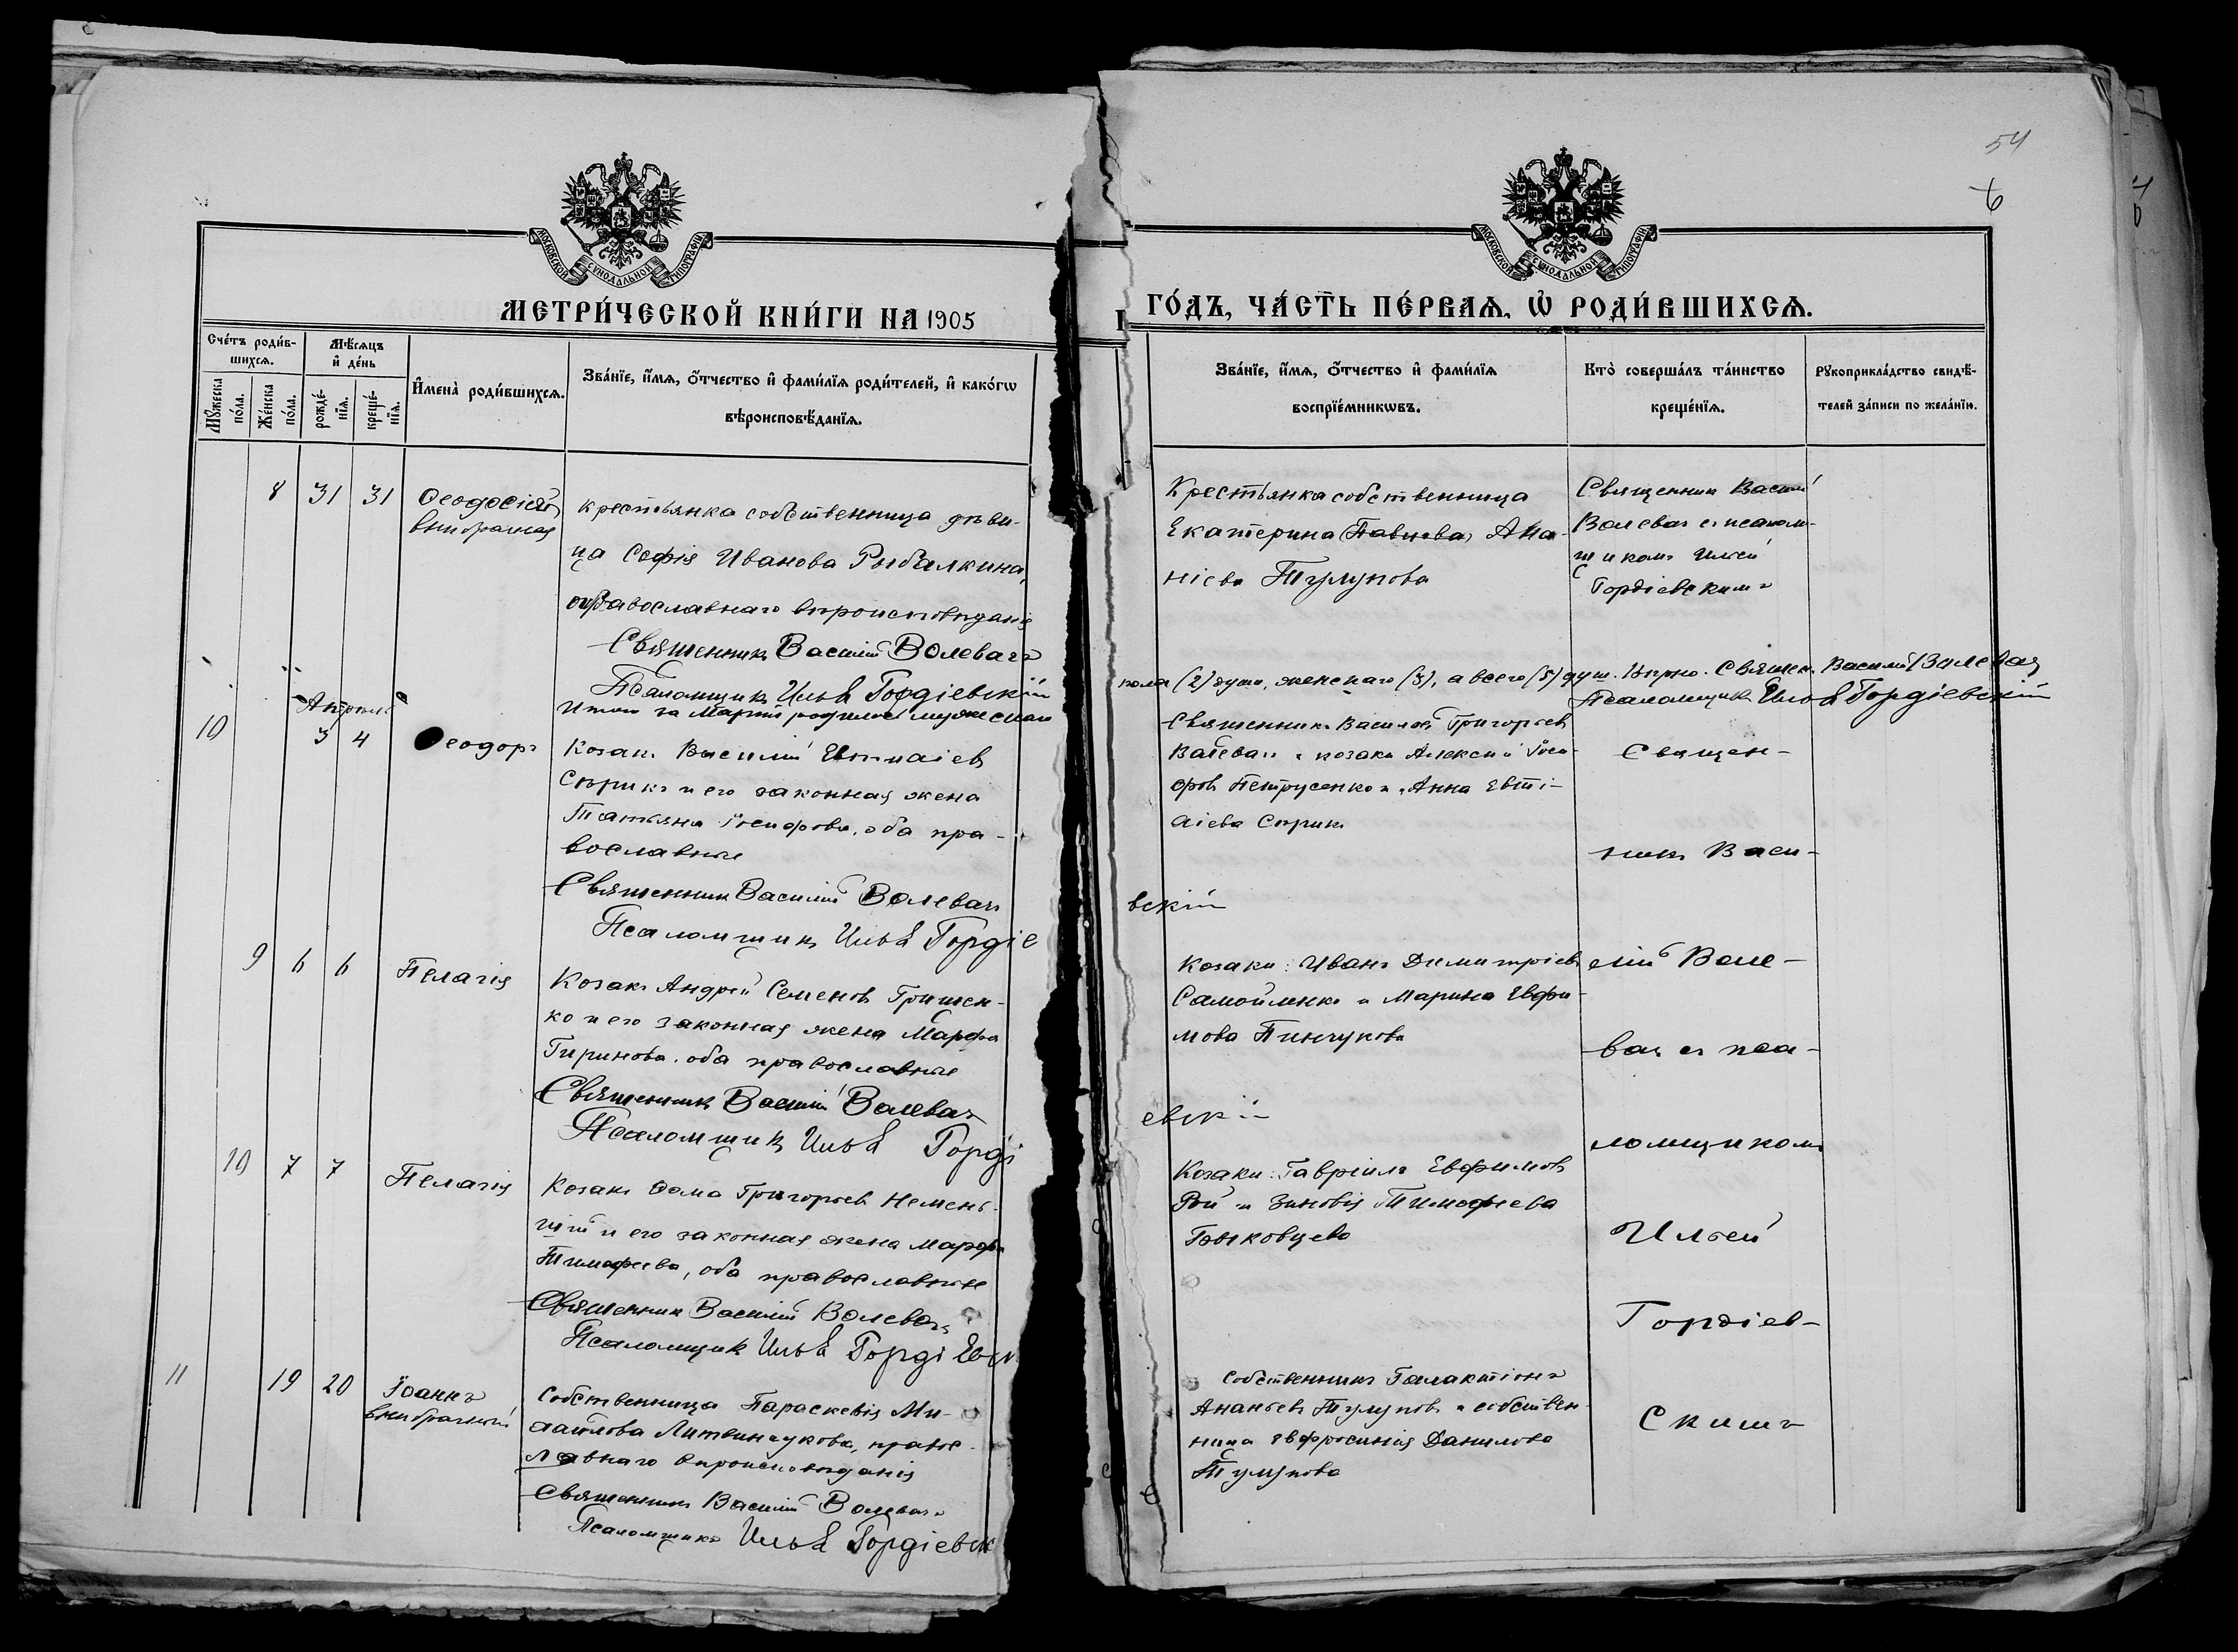 54
6
МОСКОВСКОЙ СѴНОДАЛЬНОЙ ТИПОГРАФІИ
МОСКОВСКОЙ СѴНОДАЛЬНОЙ ТИПОГРАФІИ
МЕТРИ́ЧЕСКОЙ КНИ́ГИ НА 1905
ГО́ДЪ, ЧА́СТЬ ПЕ́РВАѦ, Ѽ РОДИ́ВШИХСѦ.
Сче́тъ роди́в-
шихсѧ.
Мѣ́сѧцъ
и҆ де́нь
Мꙋ́жеска
по́ла.
Же́нска
по́ла.
рожде́-
нїѧ.
креще́-
нїѧ.
И҆мена̀ роди́вшихсѧ.
Зва́нїе, и҆́мѧ, ѻ҆́тчество и҆ фами́лїѧ роди́телей, и҆ како́гѡ
вѣроисповѣ́данїѧ.
Зва́нїе, и҆́мѧ, ѻ҆́тчество и҆ фами́лїѧ
воспрїе́мникѡвъ.
Кто̀ соверша́лъ та́инство
креще́нїѧ.
Рꙋкоприкла́дство свидѣ́-
телей за́писи по жела́нїю.
8 31 31
Ѳеодосія
внѣбрачная
крестьянка собственница дѣви-
ца Софія Иванова Рыбалкина,
православнаго вѣроисповѣданія
Священникъ Василій Волевачъ
Псаломщикъ Илья Гордіевскій
Крестьянка собственница
Екатерина (Павлова) Ана-
ніева Тулупова
Священник Василій
Волевач съ псалом-
щикомъ Ильей
Гордіевскимъ
Итого за Мартъ родилось мужескаго
пола (2) душ, женскаго (3), а всего (5) душ. Вѣрно. Священ. Василій Волевач
Псаломщикъ Илья Гордіевскій
Апрѣль
10 3 4
Ѳеодоръ
Козакъ Василій Евтихіев
Сѣрикъ и его законная жена
Татьяна Іосифова, оба пра-
вославные
Священник Василій Волевач
Псаломщикъ Илья Гордіе
вскій
Священникъ Василій Григорьев
Волевач и козаки Алексѣй Іоси-
фов Петрусенко и Анна Евти-
хіева Сѣрик
9 6 6
Пелагія
Козакъ Андрей Семеновъ Гришен-
ко и его законная жена Марфа
Гиринова, оба православные
Священникъ Василій Волевач
Псаломщикъ Илья Горді
евскій
Козаки: Иванъ Димитріевъ
Самойленко и Марина Евфи-
мова Пинчукова
10 7 7
Пелагія
Козакъ Ѳома Григорьев Немень-
шій и его законная жена Марфа
Тимофеева, оба православные
Священник Василій Волевачъ
Псаломщик Илья Гордіевск
Козаки: Гавріилъ Евфимовъ
Рой и Зиновія Тимофеева
11 19 20
Іоаннъ
внѣбрачный
Собственница Параскевія Ми-
хайлова Литвинчукова, правос-
лавнаго вѣроисповѣданія
Священникъ Василій Волевачъ
Псаломщикъ Илья Гордіевск
Собственникъ Галактіонъ
Ананьевъ Тулуповъ и собствен-
ница Евфросинія Данилова
Тулупова
Священ-
никъ Васи-
лій Воле-
вач съ пса-
ломщикомъ
Ильей
Гордіев-
скимъ